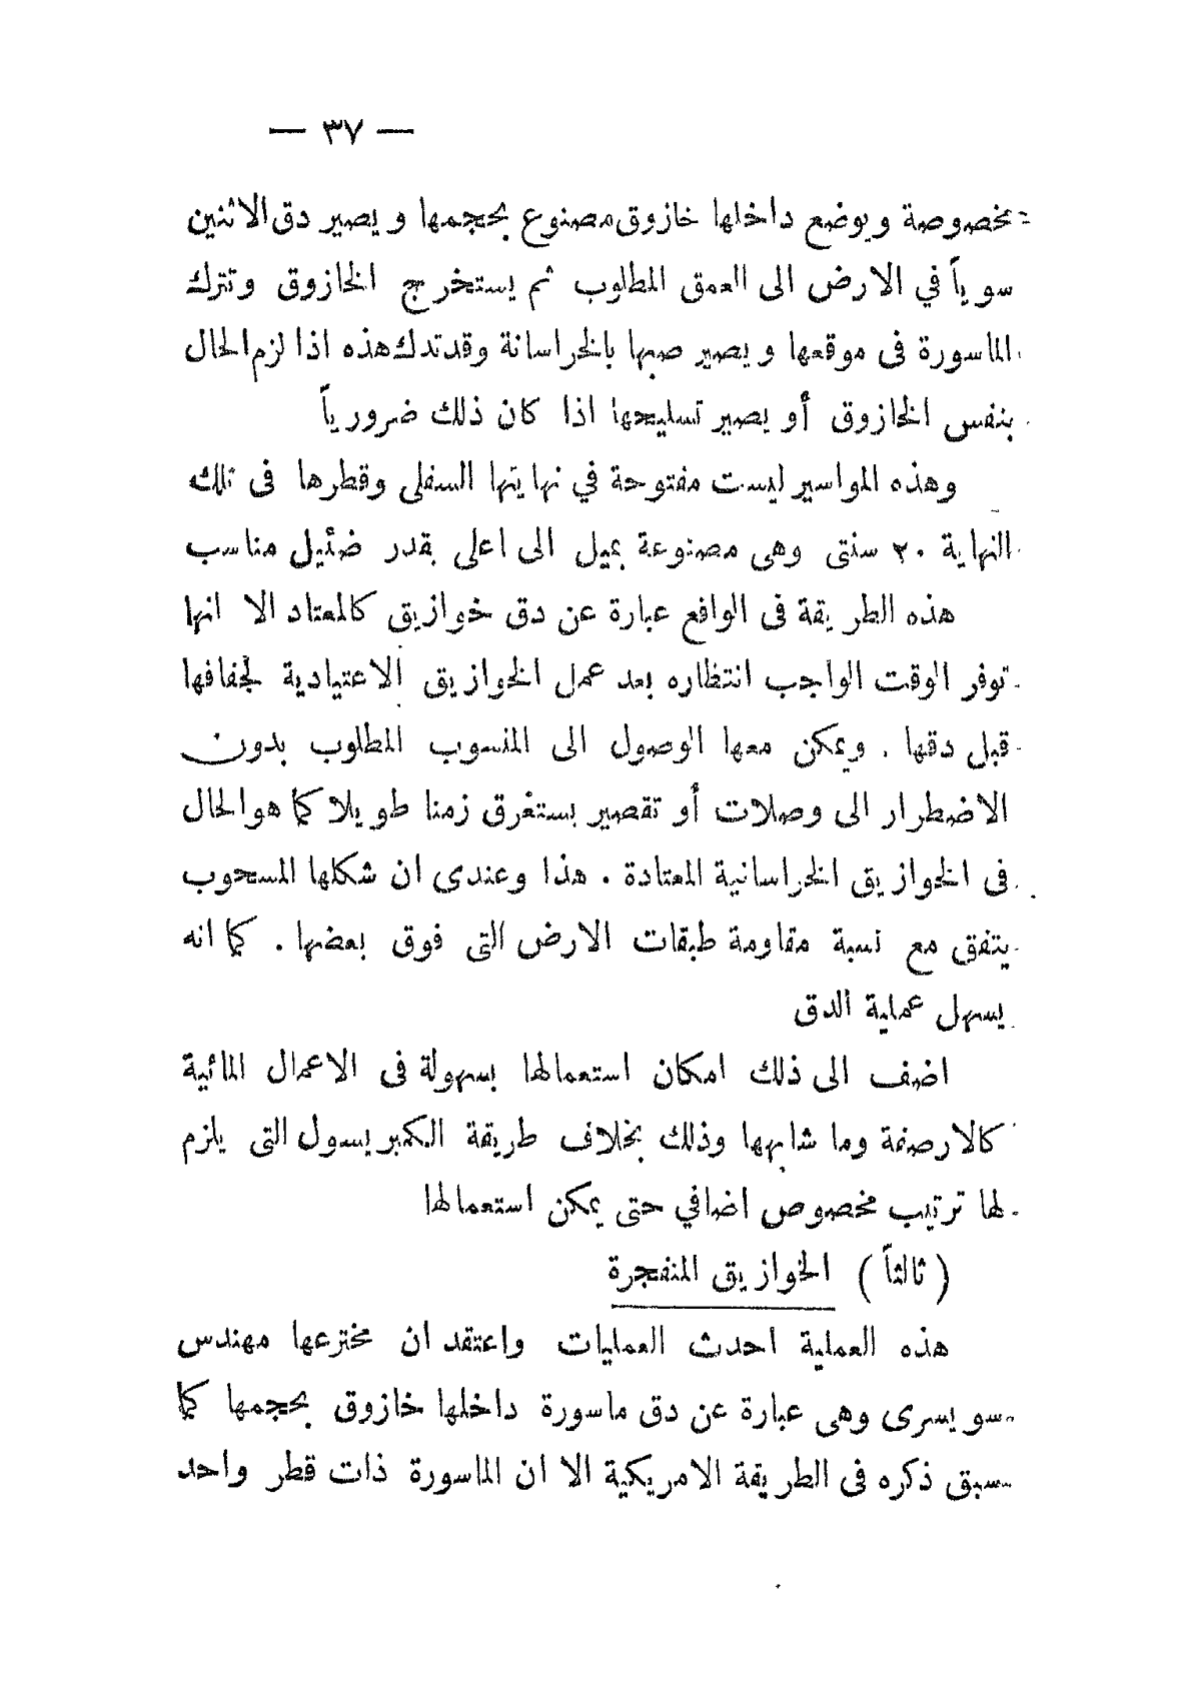 — ٣٧ —
مخصوصة ويوضع داخلها خازوق مصنوع بحجمها ويصير دق الاثنين
سوياً في الارض الى العمق المطلوب ثم يستخرج الخازوق وتترك
الماسورة فى موقعها ويصير صبها بالخراسانة وقد تدك هذه اذا لزم الحال
بنفس الخازوق أو يصير تسليحها اذا كان ذلك ضرورياً
وهذه المواسير ليست مفتوحة في نهايتها السفلى وقطرها فى تلك
النهاية ٢٠ سنتى وهى مصنوعة بميل الى اعلى بقدر ضئيل مناسب
هذه الطريقة فى الواقع عبارة عن دق خوازيق كالمعتاد الا انها
توفر الوقت الواجب انتظاره بعد عمل الخوازيق الاعتيادية لجفافها
قبل دقها . ويمكن معها الوصول الى المنسوب المطلوب بدون
الاضطرار الى وصلات أو تقصير يستغرق زمنا طويلا كما هو الحال
فى الخوازيق الخراسانية المعتادة . هذا وعندى ان شكلها المسحوب
يتفق مع نسبة مقاومة طبقات الارض التى فوق بعضها . كما انه
يسهل عملية الدق
اضف الى ذلك امكان استعمالها بسهولة فى الاعمال المائية
كالارصفة وما شابهها وذلك بخلاف طريقة الكمبريسول التى يلزم
لها ترتيب مخصوص اضافي حتى يمكن استعمالها
( ثالثاً ) الخوازيق المنفجرة
هذه العملية احدث العمليات واعتقد ان مخترعها مهندس
سويسرى وهى عبارة عن دق ماسورة داخلها خازوق بحجمها كما
سبق ذكره فى الطريقة الامريكية الا ان الماسورة ذات قطر واحد